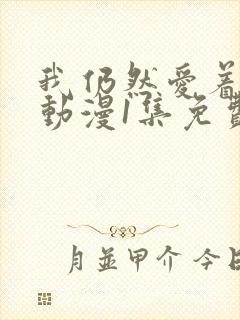 我仍然愛着
動漫1集免費
月並甲介 今日